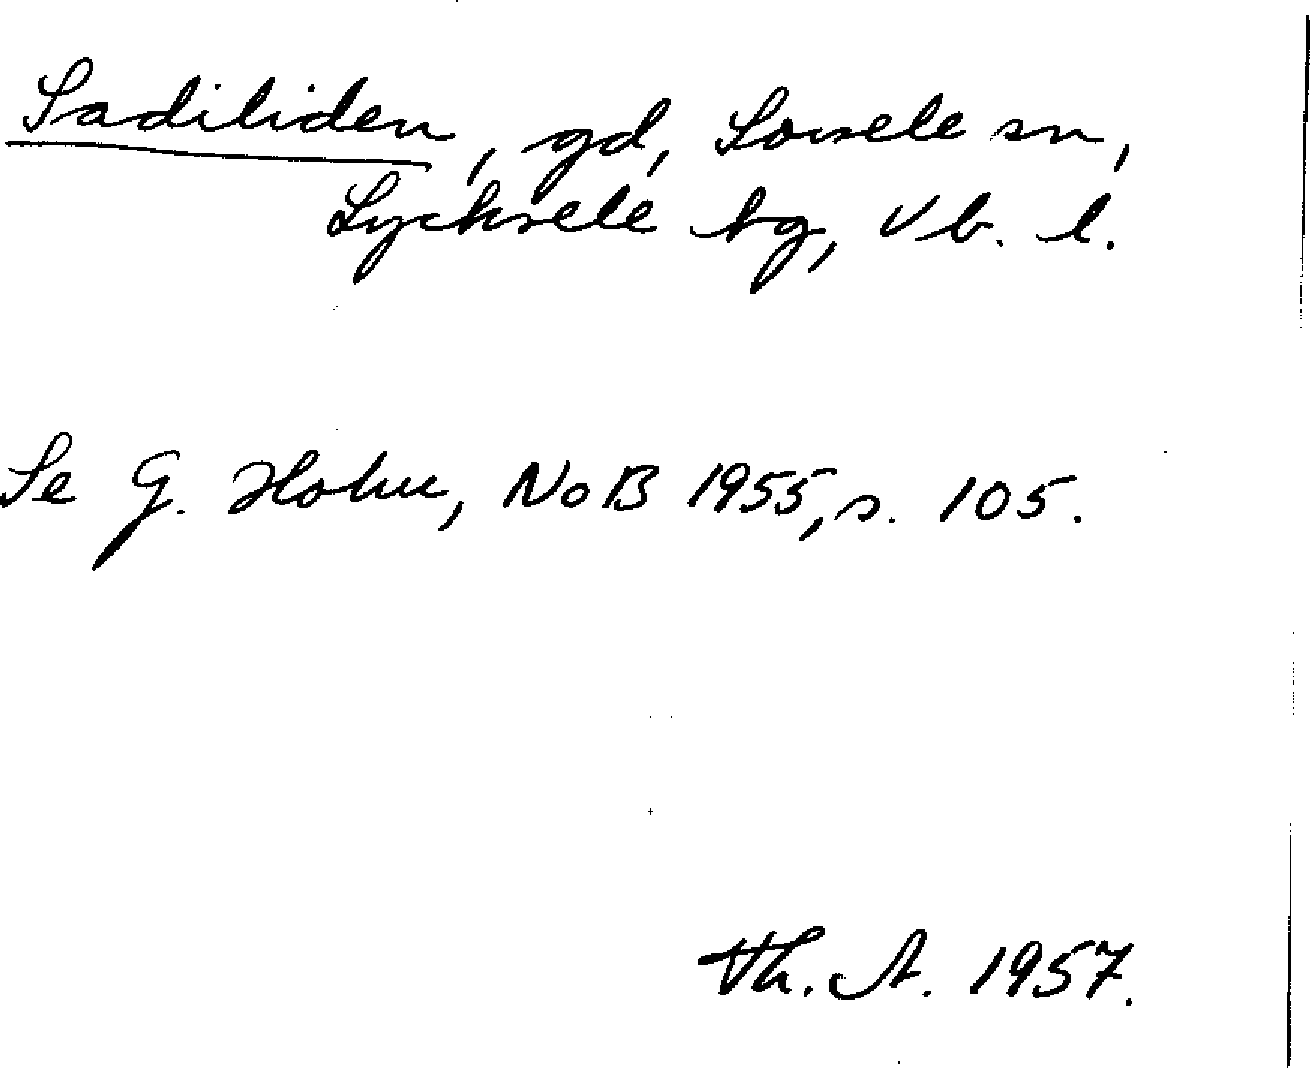 Sadiliden, gd, Sorsele sn,
Lycksele tg, Vb. l.
Se G. Holm, NoB 1955, s. 105.
Th. A. 1957.